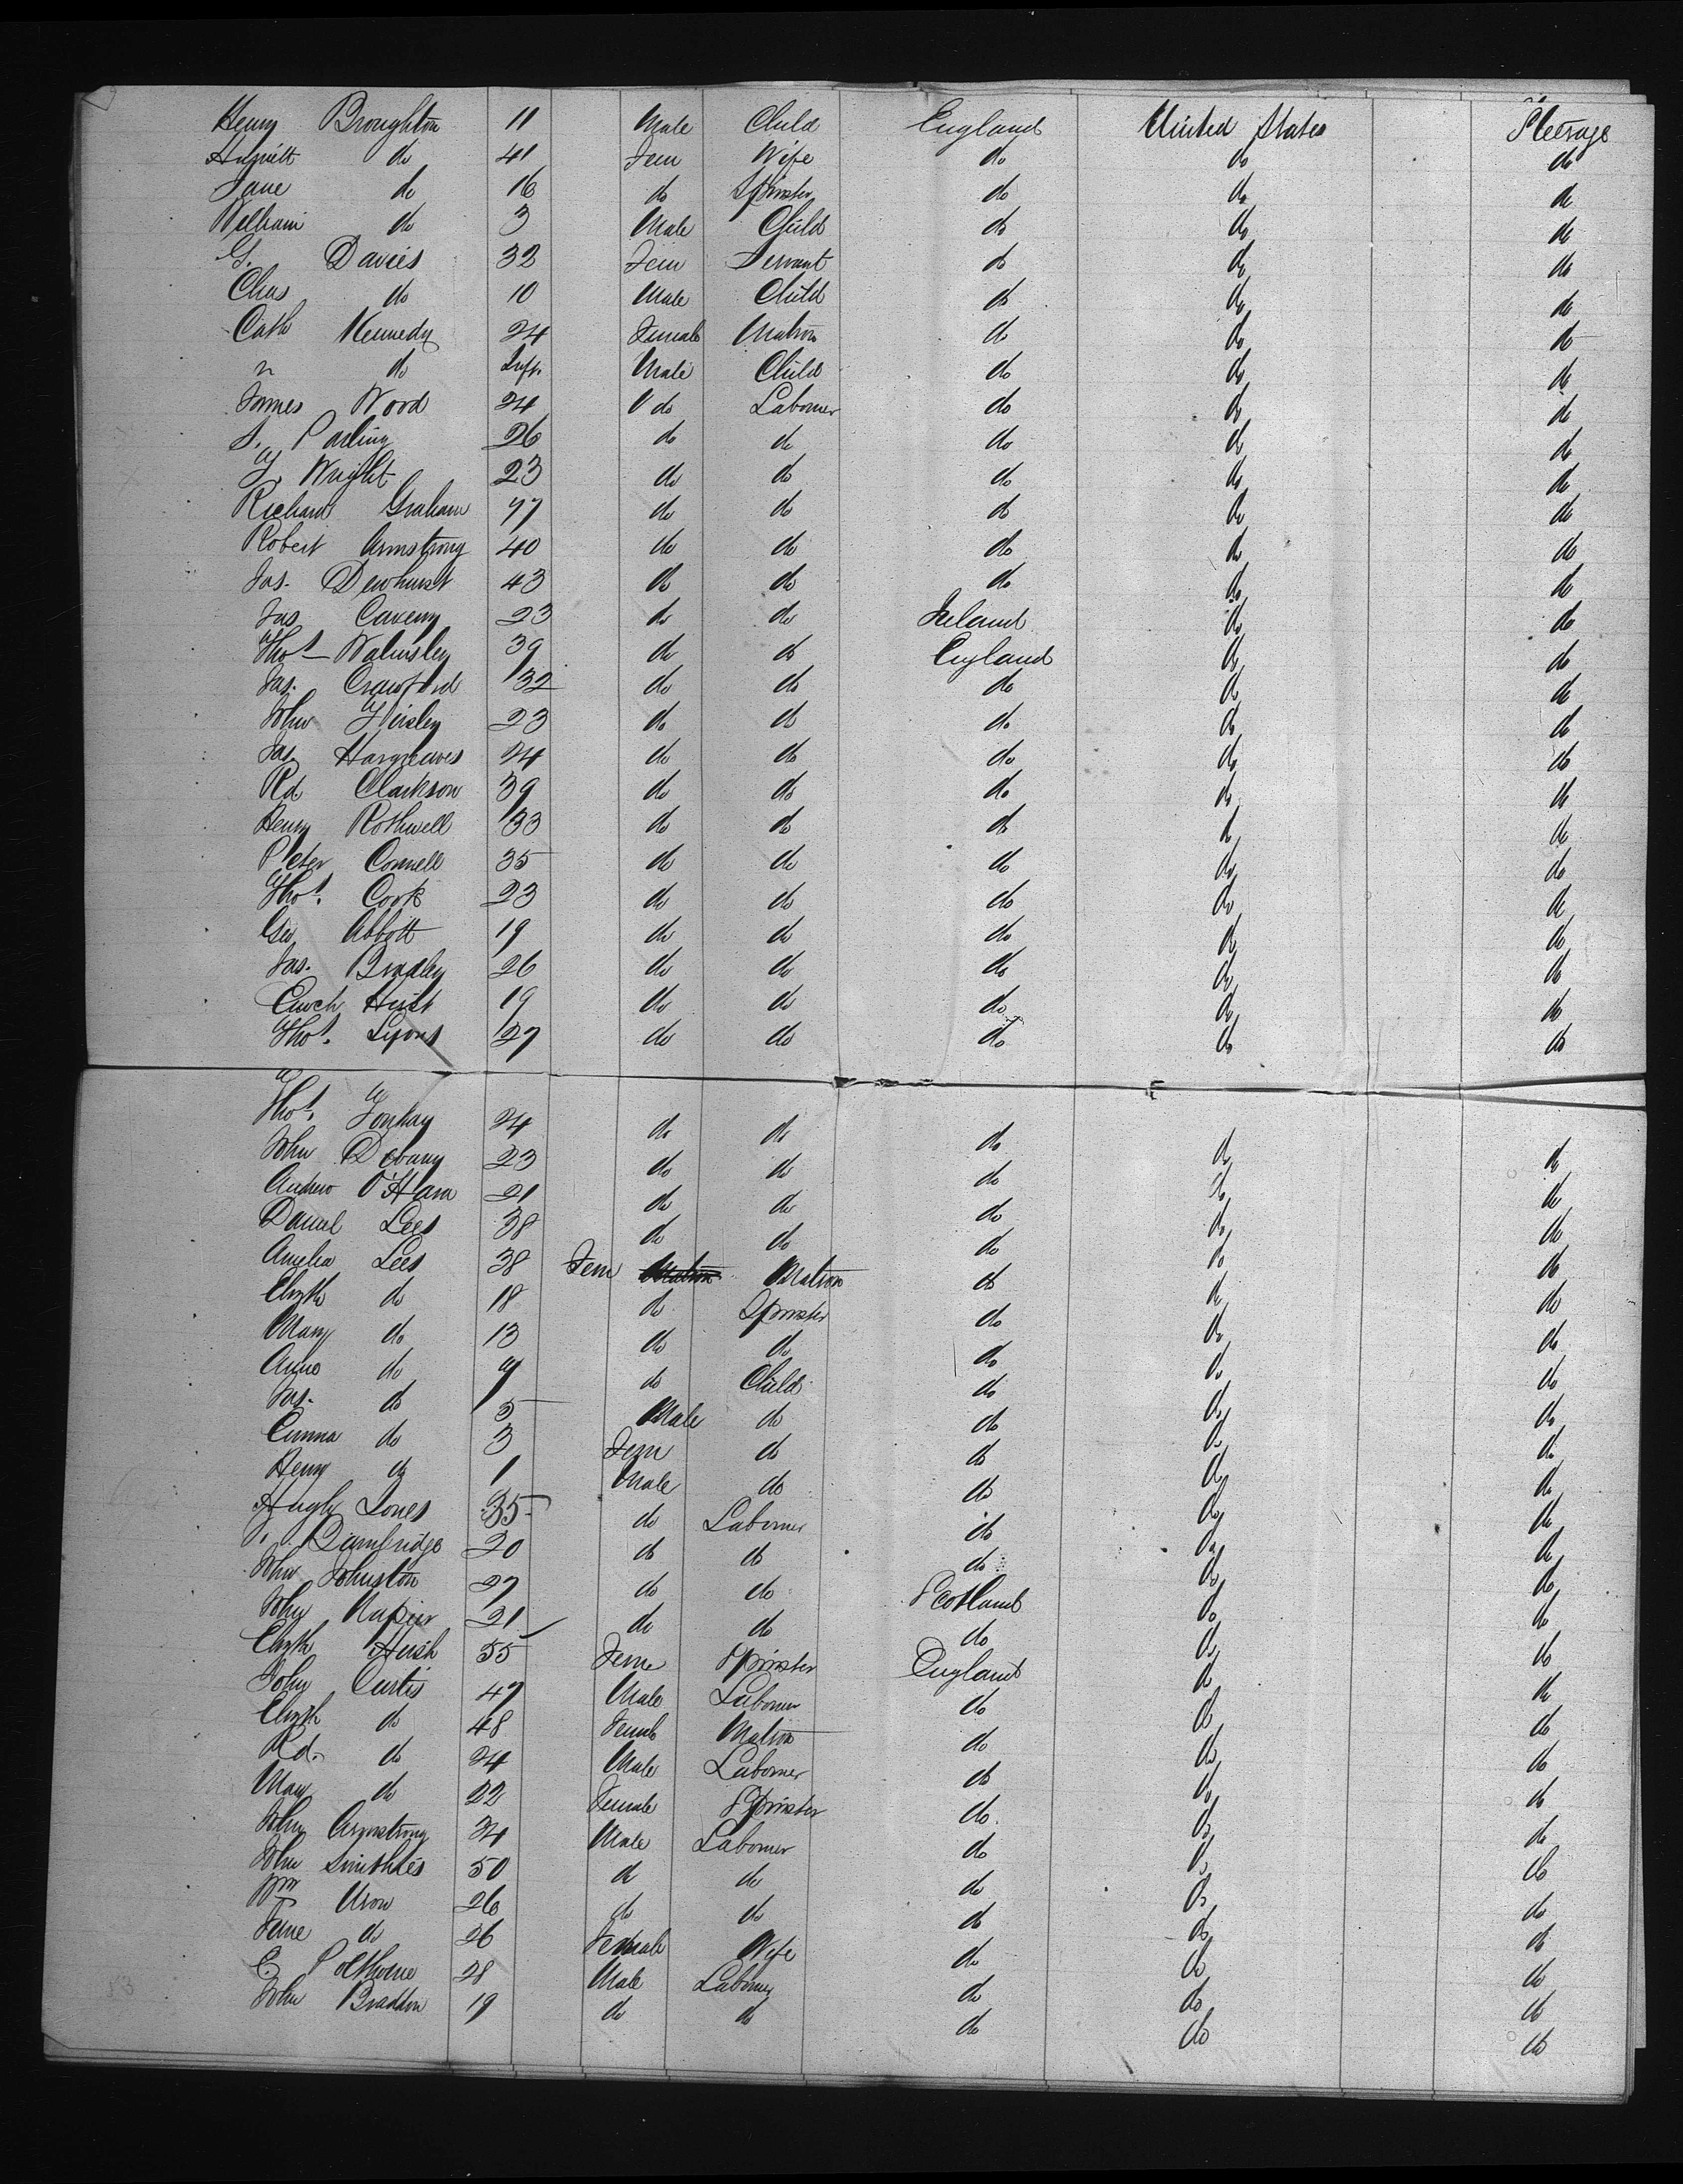 Henry Broughton 11 Male Child England United States Steerage
Harriett do 41 Fem Wife do do do
Jane do 16 do Spinster do do do
William do 3 Male Child do do do
G. Davies 32 Fem Servant do do do
Chas do 10 Male Child do do do
Cath Kennedy 24 Female Matron do do do
" do Inft. Male Child do do do
James Wood 24 do Laborer do do do
S. Parling 26 do do do do do
T. Wright 23 do do do do do
Richard Graham 47 do do do do do
Robert Armstrong 40 do do do do do
Jas. Dewhurst 43 do do do do do
Jas Caveny 23 do do Ireland do do
Thos. Walmsley 39 do do England do do
Jas. Crawford 32 do do do do do
John Tinsley 23 do do do do do
Jas. Hargreaves 24 do do do do do
Rd. Clarkson 39 do do do do do
Henry Rothwell 33 do do do do do
Peter Connell 35 do do do do do
Thos. Cook 23 do do do do do
Geo Abbott 19 do do do do do
Jas. Bradley 26 do do do do do
Enoch Hirst 19 do do do do do
Thos. Lyons 27 do do do do do
Thos. 24 do do do do do
John Devany 23 do do do do do
Andrew O'Hara 21 do do do do do
Daniel Lees 38 do do do do do
Amelia Lees 38 Fem Matron do do do
Elizth do 18 do Spinster do do do
Mary do 13 do do do do do
Anne do 9 do Child do do do
Jas. do 5 Male do do do do
Emma do 3 Fem do do do do
Henry do 1 Male do do do do
Hugh Jones 35 do Laborer do do do
Bambridge 20 do do do do do
John Johnston 27 do do Scotland do do
John Napier 21 do do do do do
Elizth Hush 55 Fem Spinster England do do
John Curtis 47 Male Laborer do do do
Elizth do 48 Female Matron do do do
Rd. do 24 Male Laborer do do do
Mary do 22 Female Spinster do do do
John Armstrong 34 Male Laborer do do do
John Smithies 50 do do do do do
Wm 26 do do do do do
Jane do 26 Female Wife do do do
E. Polthorne 28 Male Laborer do do do
John Braddon 19 do do do do do